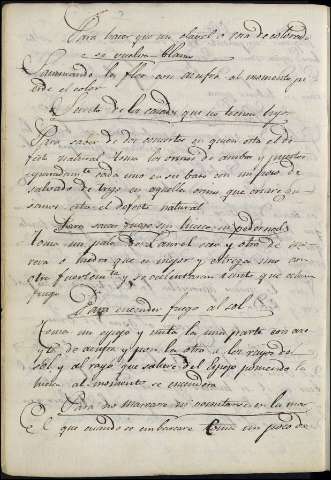 Para hacer que un clavel o rosa de colorado
se vuelva blanca
Saumando la flor con azufre al momento pi
erde el color
Secreto de los casados que no tienen hijos
Para saber de dos consortes en quien esta el de
fecto natural toma los orines de ambos y puestos
cada uno en su baso con un poco de
salvado de trigo en aquella orina que criare gu
sanos esta el defecto natural
Para sacar fuego sin hierro ni pedernal
Toma un palo de Laurel seco y otro de
o hiedra que es mejor y estrega uno con
otro fuertemte. y se
fuego
Para encender fuego al sol
Toma un espejo y unta la una parte con ace
yte de azufre y pon la otra a los rayos del
sol y al rayo que saliere del espejo poniendo la
al momento se encendera
Para no marearse ni vomitarse en la mar
El que cuando se embarcare toma un poco de